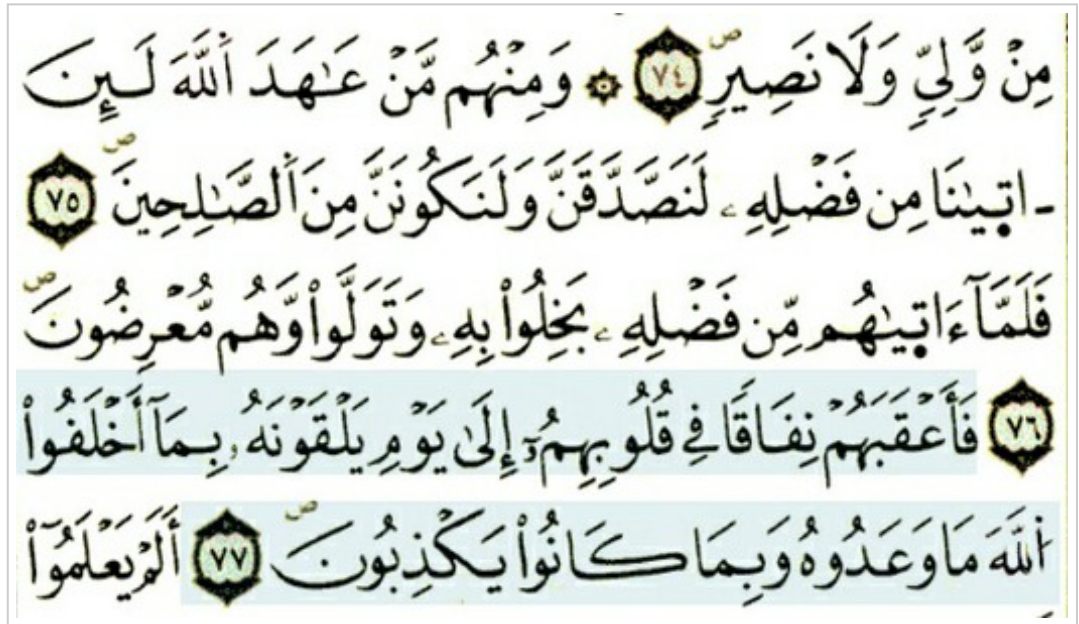 مِنْ وَّلِيّٖ وَلَا نَصِيرٖ ۖ ٧٤ ۞ وَمِنْهُم مَّنْ عَٰهَدَ اَ۬للَّهَ لَئِنَ
ـ‍اتٜيٰنَا مِن فَضْلِهِۦ لَنَصَّدَّقَنَّ وَلَنَكُونَنَّ مِنَ اَ۬لصَّٰلِحِينَ ۖ ٧٥
فَلَمَّآ ءَاتٜيٰهُم مِّن فَضْلِهِۦ بَخِلُواْ بِهِۦ وَتَوَلَّواْ وَّهُم مُّعْرِضُونَ ۖ
٧٦ فَأَعْقَبَهُمْ نِفَاقًا فِے قُلُوبِهِمُۥٓ إِلَىٰ يَوْمِ يَلْقَوْنَهُۥ بِمَآ أَخْلَفُواْ
اُ۬للَّهَ مَا وَعَدُوهُ وَبِمَا كَانُواْ يَكْذِبُونَ ۖ ٧٧ أَلَمْ يَعْلَمُوٓاْ